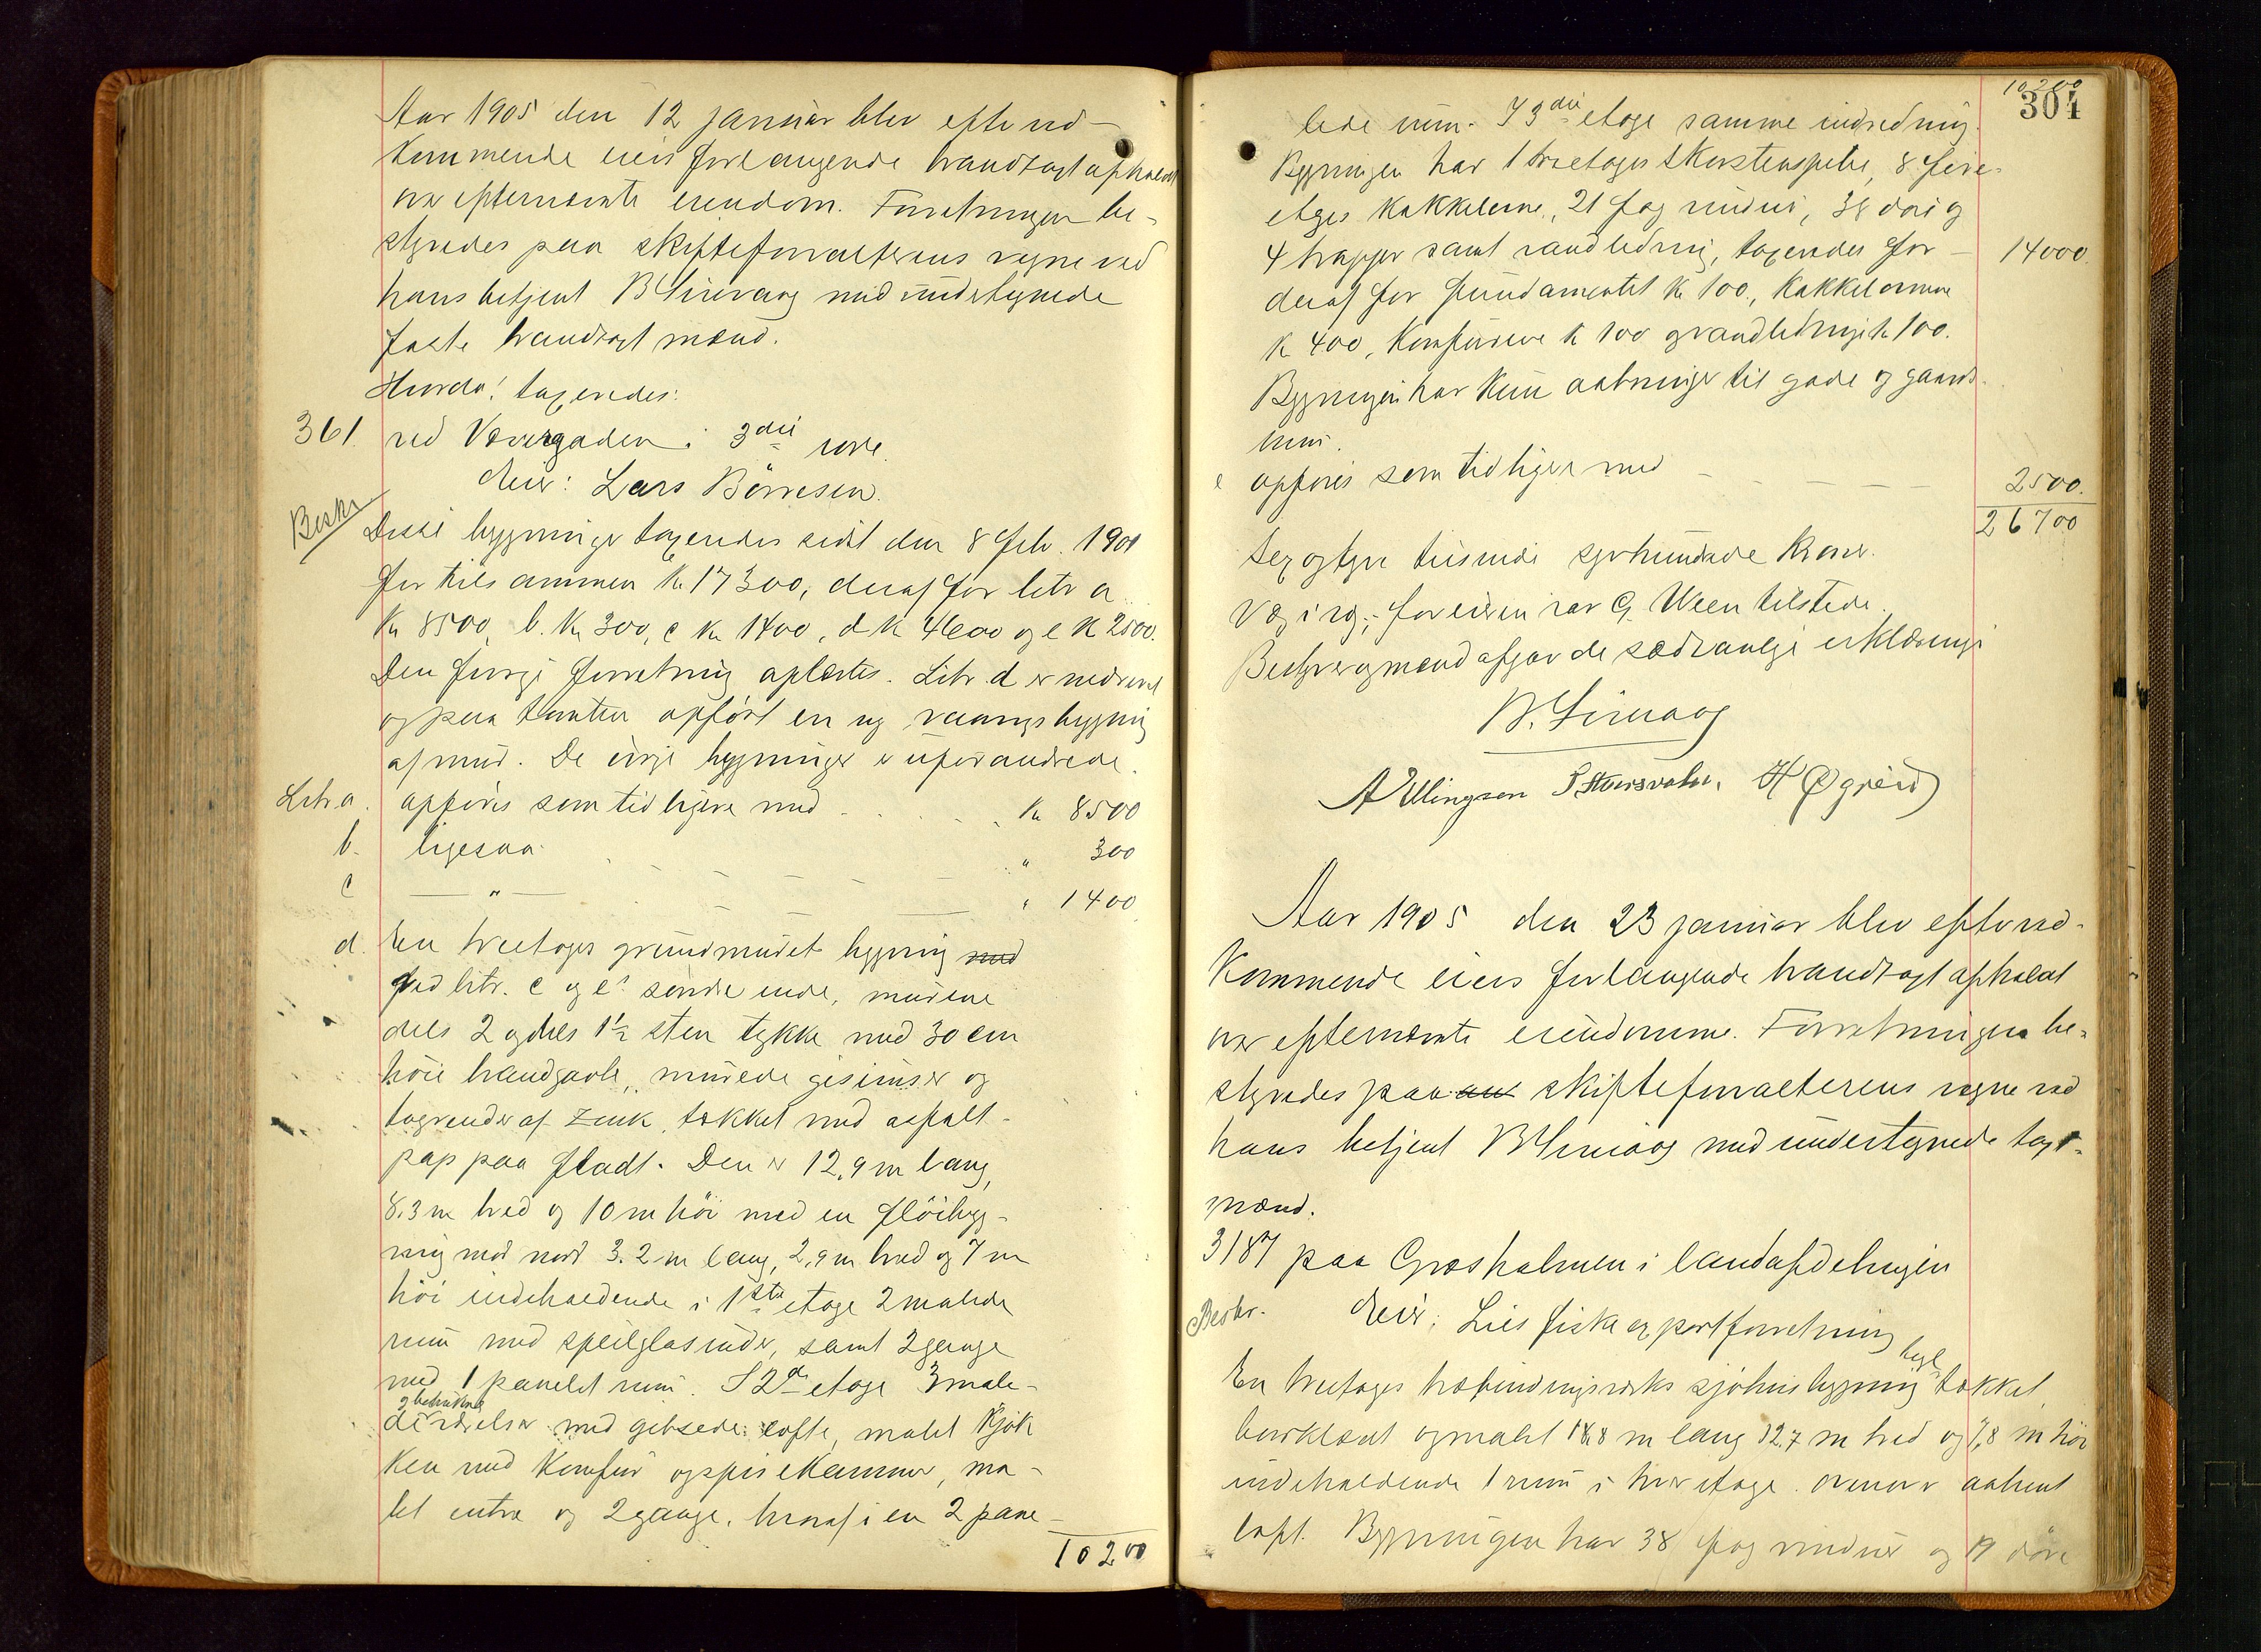 Aar 1905 den 12 januar blev efter ved-
kommende eiers forlangende brandtaxt afholdt
over efternævnte eiendom. Forretningen be-
styredes paa skifteforvalterens vegne ved
hans betjent B Sirevaag med undertegnede
faste brandtaxtmænd.
Hvorda! taxeredes:
361. ved Vævergaden i 3die rode.
Eier: Lars Børresen.
Beskr
Disse bygninger taxeredes sidst den 8 febr. 1901
for tilsammen Kr 17300, deraf for litr a
Kr 8500, b. Kr 300, c Kr 1400, d Kr 4600 og e Kr 2500.
Den forrige forretning oplæstes. Litr. d er nedrevet
og paa tomten opført en ny vaaningsbygning
af mur. De øvrige bygninger er uforandrede.
Litr. a. opføres som tidligere med Kr 8500
b. ligesaa " 300
c — " — " 1400
d. En treetages grundmuret bygning med
ved litr. c og e's søndre ende, murene
dels 2 og dels 1½ sten tykke med 30 cm
høie brandgavle, murede gesimser og
tagrender af zink, tækket med asfalt-
pap paa fladt. Den er 12,9 m lang,
8.3 m bred og 10 m høi med en fløibyg-
ning mod nord 3.2 m lang, 2,9 m bred og 7 m
høi indeholdende i 1ste etage 2 malede
rum med speilglasruder, samt 2 gange
med 1 panelet rum. I 2den etage 3 male-
og betrukne
de værelser med gibsede lofte, malet kjøk
ken med komfur og spisekammer, ma-
let entre og 2 gange, hvoraf i en 2 pane-
10200
10200
304
lede rum. I 3die etage samme indredning.
Bygningen har 1 treetages skorstenspibe, 8 fire-
etages kakkelovne, 21 fag vinduer, 38 døre og
4 trapper samt vandledning, taxeredes for — 14000.
deraf for fundamentet Kr 100, kakkelovnene
Kr 400, komfurene Kr 100 og vandledningen Kr 100.
Bygningen har kun aabninger til gade og gaards-
rum.
e opføres som tidligere med — 2500.
26700
sex og tyve tusinde syvhundrede kroner.
V æ i rg.; for eieren var G. Ween tilstede.
Bestyrer og mænd afgav de sædvanlige erklæringer
B. Sirevaag
A Ellingsen H Øgreid
Aar 1905 den 23 januar blev efter ved-
kommende eiers forlangende brandtaxt afholdt
over efternævnte eiendomme. Forretningen be-
styredes paa skifteforvalterens vegne ved
hans betjent B Sirevaag med undertegnede taxt-
mænd.
3187 paa Græsholmen i landafdelingen
Beskr. Eier: Lies fiskeexportforretning
tegl
En treetages træbindingsværks sjøhusbygning tækket,
bordklædt og malet 18,8 m lang 12.7 m bred og 7,8 m høi
indeholdende 1 rum i hver etage. ovenover aabent
loft. Bygningen har 38 fag vinduer og 19 døre